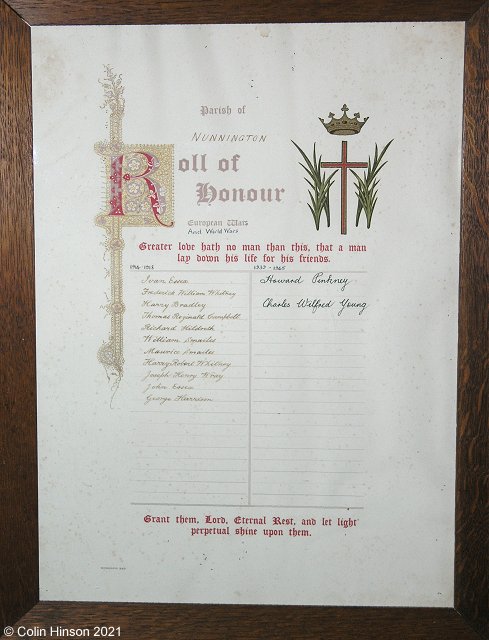 Parish of
NUNNINGTON
Roll of
Honour
European Wars
And World Wars
Greater love hath no man than this, that a man
lay down his life for his friends.
1914-1918
1939-1945
Ivan Essex
Frederick William Whitney
Harry Bradley
Thomas Reginald Campbell
Richard Hildreth
William Smailes
Maurice Smailes
Harry Robert Whitney
Joseph Henry Wray
John Essex
George Harrison
Howard Pinkney
Charles Wilfred Young
Grant them, Lord, Eternal Rest, and let light
perpetual shine upon them.
© Colin Hinson 2021